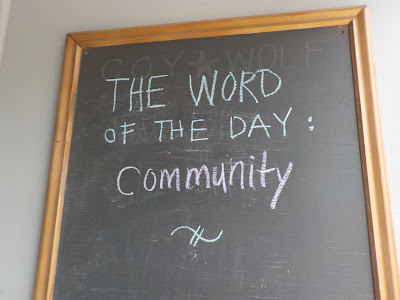 COY★WOLF
THE WORD
OF THE DAY:
Community